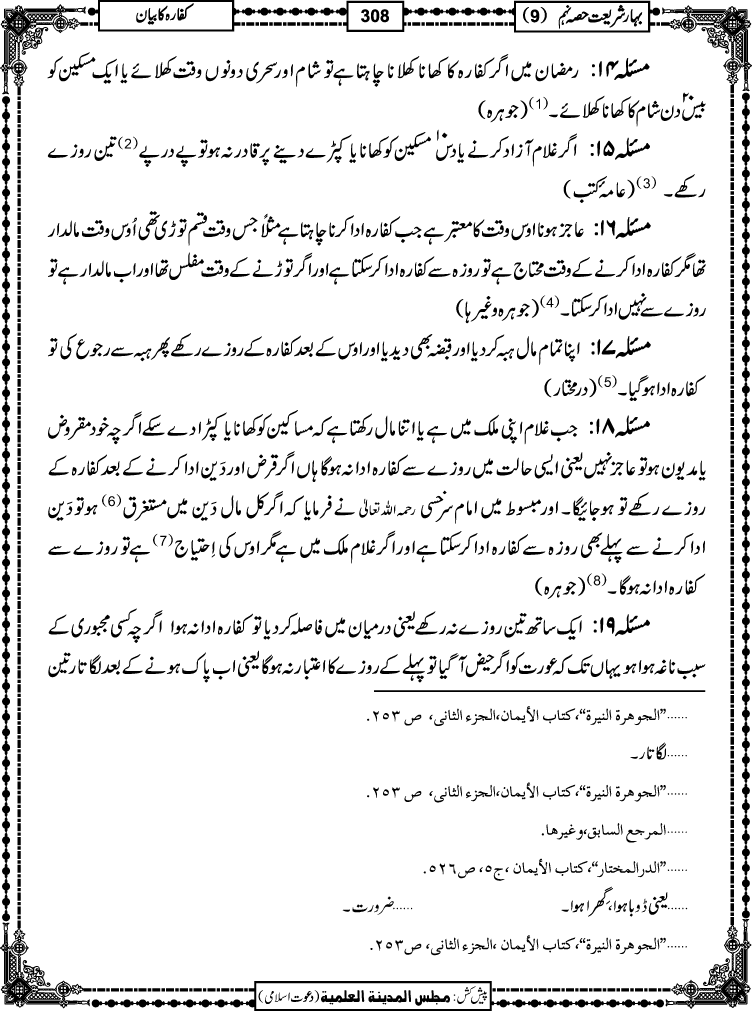 بہارِ شریعت حصہ نہم (9)
308
کفارہ کا بیان
مسئلہ ۱۴: رمضان میں اگر کفارہ کا کھانا کھلانا چاہتا ہے تو شام اور سحری دونوں وقت کھلائے یا ایک مسکین کو
بیس۲۰ دن شام کا کھانا کھلائے۔(1) (جوہرہ)
مسئلہ ۱۵: اگر غلام آزاد کرنے یا دس۱۰ مسکین کو کھانا یا کپڑے دینے پر قادر نہ ہو تو پے درپے(2) تین روزے
رکھے۔(3) (عامۂ کتب)
مسئلہ ۱۶: عاجز ہونا اوس وقت کا معتبر ہے جب کفارہ ادا کرنا چاہتا ہے مثلاً جس وقت قسم توڑی تھی اُوس وقت مالدار
تھا مگر کفارہ ادا کرنے کے وقت محتاج ہے تو روزہ سے کفارہ ادا کرسکتا ہے اور اگر توڑنے کے وقت مفلس تھا اور اب مالدار ہے تو
روزے سے نہیں ادا کرسکتا۔(4) (جوہرہ وغیرہا)
مسئلہ ۱۷: اپنا تمام مال ہبہ کردیا اور قبضہ بھی دیدیا اور اوس کے بعد کفارہ کے روزے رکھے پھر ہبہ سے رجوع کی تو
کفارہ ادا ہوگیا۔(5) (درمختار)
مسئلہ ۱۸: جب غلام اپنی ملک میں ہے یا اتنا مال رکھتا ہے کہ مساکین کو کھانا یا کپڑا دے سکے اگرچہ خود مقروض
یا مدیون ہو تو عاجز نہیں یعنی ایسی حالت میں روزے سے کفارہ ادا نہ ہوگا ہاں اگر قرض اور دَین ادا کرنے کے بعد کفارہ کے
روزے رکھے تو ہوجائیگا۔ اور مبسوط میں امام سرخسی رحمہ اللہ تعالیٰ نے فرمایا کہ اگر کل مال دَین میں مستغرق(6) ہو تو دَین
ادا کرنے سے پہلے بھی روزہ سے کفارہ ادا کرسکتا ہے اور اگر غلام ملک میں ہے مگر اوس کی اِحتیاج(7) ہے تو روزے سے
کفارہ ادا نہ ہوگا۔(8) (جوہرہ)
مسئلہ ۱۹: ایک ساتھ تین روزے نہ رکھے یعنی درمیان میں فاصلہ کردیا تو کفارہ ادا نہ ہوا اگرچہ کسی مجبوری کے
سبب ناغہ ہوا ہو یہاں تک کہ عورت کو اگر حیض آگیا تو پہلے کے روزے کا اعتبار نہ ہوگا یعنی اب پاک ہونے کے بعد لگاتار تین
......"الجوهرة النيرة"، كتاب الأيمان، الجزء الثانی، ص ٢٥٣.
......لگاتار۔
......"الجوهرة النيرة"، كتاب الأيمان، الجزء الثانی، ص ٢٥٣.
......المرجع السابق، وغيرها.
......"الدرالمختار"، كتاب الأيمان، ج٥، ص٥٢٦.
......یعنی ڈوبا ہوا، گھِرا ہوا۔ ......ضرورت۔
......"الجوهرة النيرة"، كتاب الأيمان، الجزء الثانی، ص٢٥٣.
پیش کش: مجلس المدينة العلمية (دعوت اسلامی)